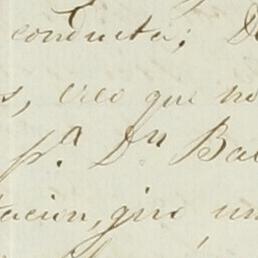 conducta; D
s, creo que no
p.ª Dn Bal
tacion, giro un